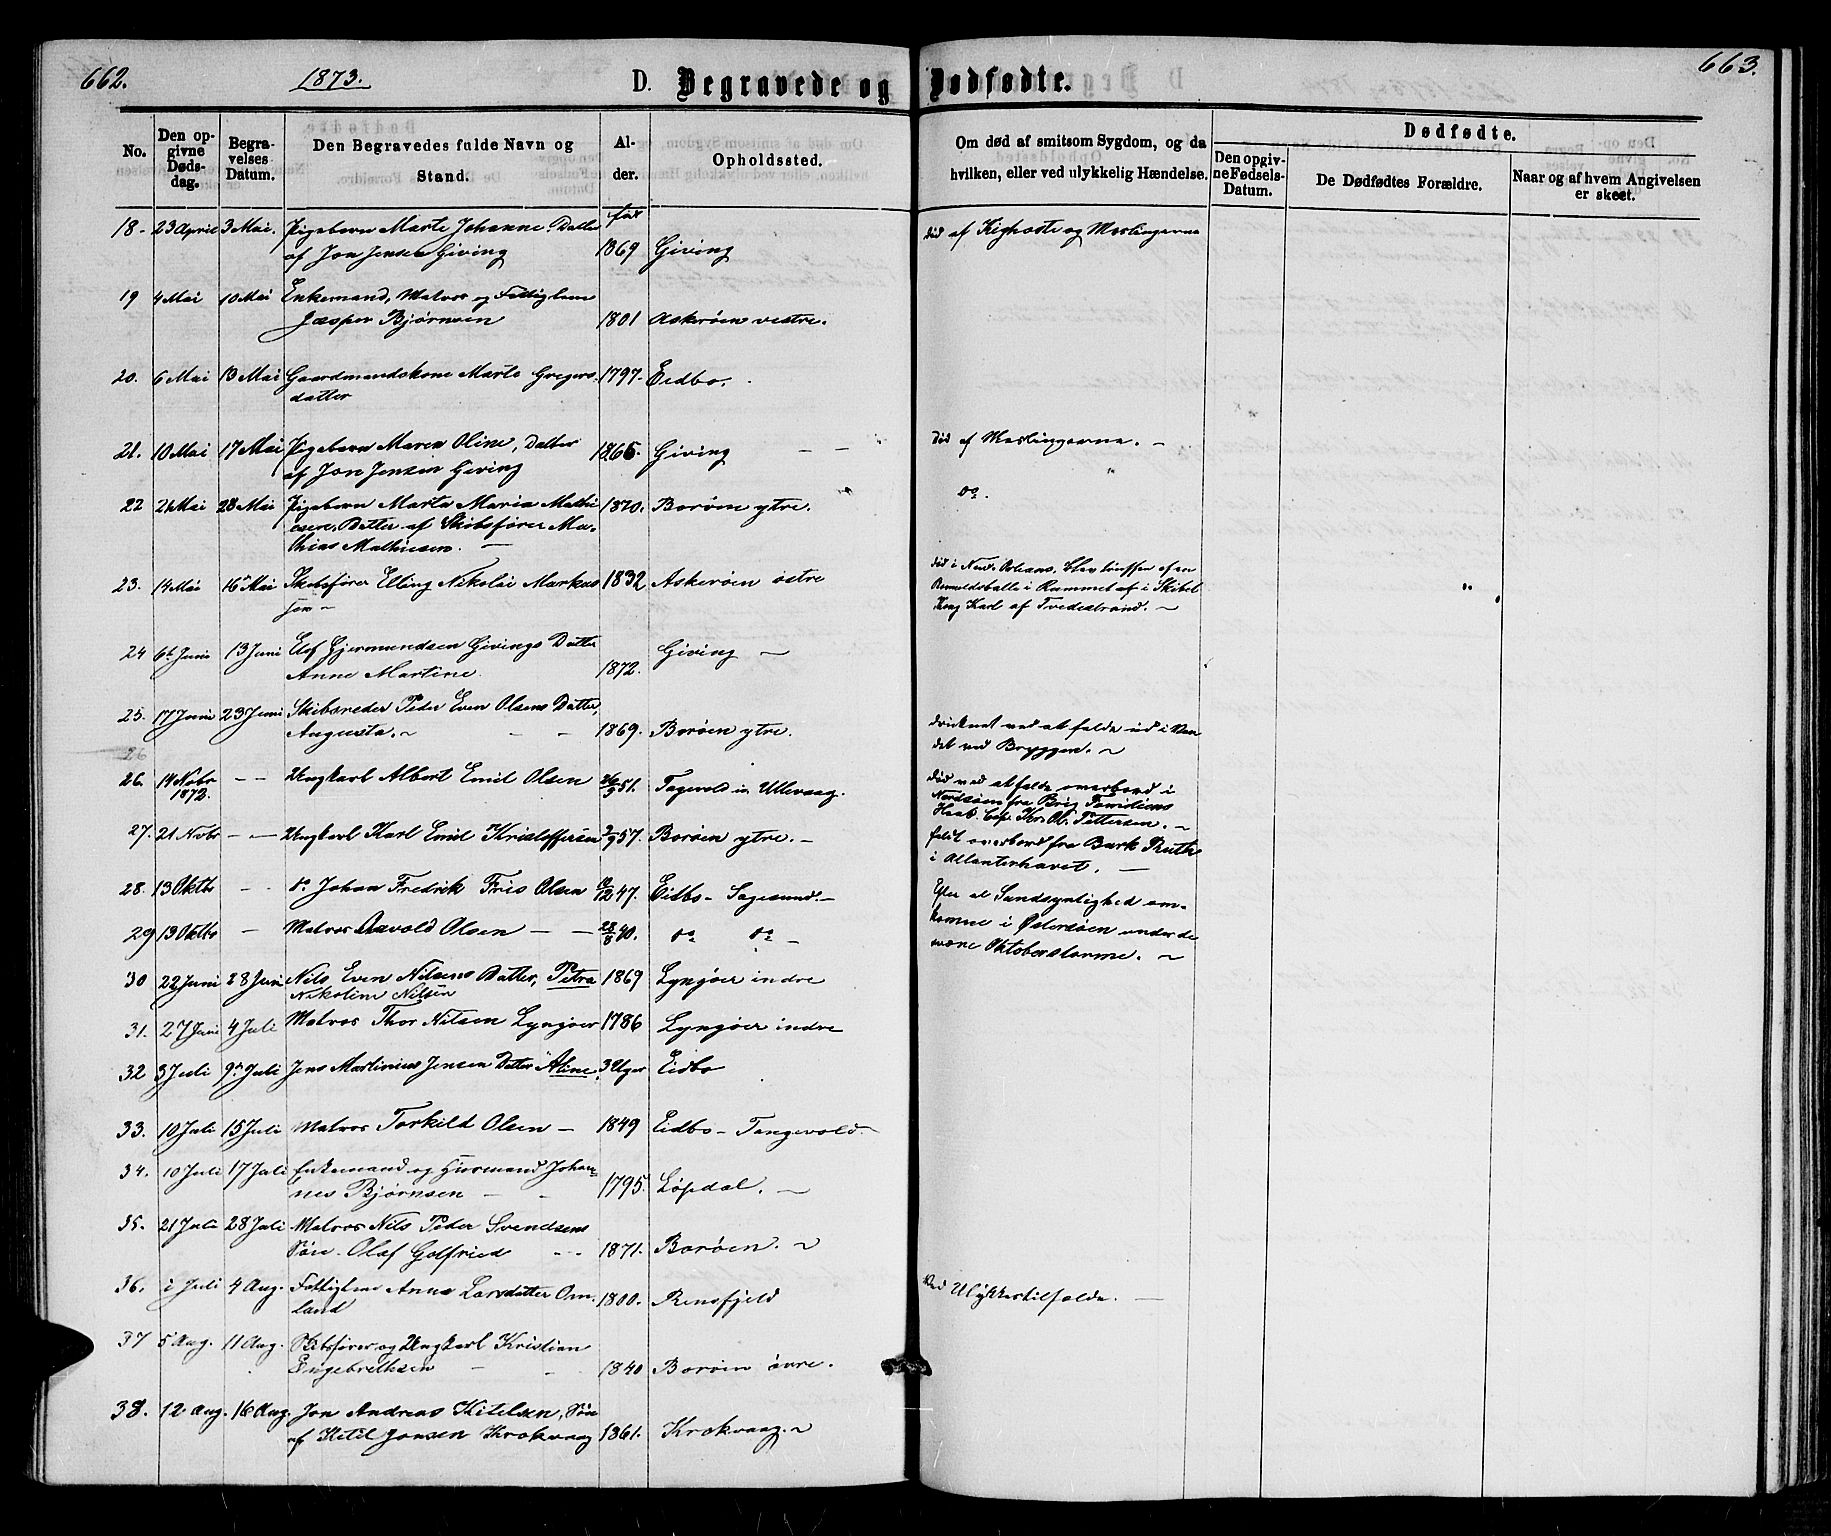 662.
1873.
D. Begravede og Dødfødte.
663.
No.
Den op-
givne
Døds-
dag.
Begra-
velses
Datum.
Den Begravedes fulde Navn og
Stand.
Al-
der.
Opholdssted.
Om død af smitsom Sygdom, og da
hvilken, eller ved ulykkelig Hændelse.
Dødfødte.
Den opgiv-
ne Fødsels-
Datum.
De Dødfødtes Forældre.
Naar og af hvem Angivelsen
er skeet.
18. 23 April 3 Mai. Pigebarn Marte Johanne Datter født
af Jon Jensen Giving 1869 Giving
død af Kighoste og Meslingerne
19 4 Mai 10 Mai Enkemand, Matros og Fattiglem
Jæsper Bjørnsen 1801 Askerøen vestre.
20. 6 Mai 13 Mai Gaardmandskone Marte Gregers- 1797. Eidbo.
datter
21. 10 Mai 17 Mai Pigebarn Maren Oline, Datter 1865. Giving
af Jon Jensen Giving
død af Meslingerne. –
22 21 Mai 28 Mai Pigebarn Marta Maria Mathi 1870. Borøen ytre.
Datter af Skibsfører Ma-
thias Mathiesen. –
do.
23. 14 Mai 16 Mai Skibsfører Elling Nikolai Markus 1832 Askerøen østre
sen
død i New-Orleans, blev truffen af en
Bomuldsballe i Rummet af i Skibet
Kong Karl af Tvedestrand.
24 6te Juni 13 Juni Elef Gjermundsen Givings Datter
Anne Martine. 1872. Giving –
25. 17 Juni 23 Juni Skibsreder Peder Even Olsens Datter,
Augusta. – – 1869. Borøen ytre.
druknet ved at falde ud i Van
det ved Bryggen.
26
26. 14 Novbr – – Ungkarl Albert Emil Olsen 26/9 51. Tagevold in Ullevaag.
1872.
død ved at falde overbord i
Nordsøen fra Brig Familiens
Haab. Cap. Kr. Ol. Pettersen.
27. 21 Novbr – – Ungkarl Karl Emil Kristoffersen 3/9 57. Borøen ytre. –
faldt overbord fra Bark Ruth
i Atlanterhavet. –
28. 13 Oktbr – – do Johan Fredrik Friis Olsen 12/12 47. Eidbo – Sagesund. –
Efter al Sandsynlighed om-
29 13 Oktbr – Matros Aavold Olsen – – 28/8 40. do do –
komne i Østersøen under de
svære Oktoberstorme.
30 22 Juni 28 Juni Nils Even Nilsens Datter, Petra 1869 Lyngøer indre
Nikoline Nilsen
31. 27 Juni 4 Juli Matros Thor Nilsen Lyngøer 1786 Lyngøer indre
32 3 Juli 9de Juli Jens Martinius Jensen Datter Aline. 3 Uger Eidbo
33. 10 Juli 15 Juli Matros Torkild Olsen – 1849 Eidbo – Tangevold.
34. 10 Juli 17 Juli Enkemand og Huusmand Johan-
nes Bjørnsen – – 1795. Løpdal. –
35. 21 Juli 28 Juli Matros Nils Peder Svendsens
Søn. Olaf Gotfried – – 1871. Borøen.
36. i Juli 4 Aug. Fattiglem Anne Larsdatter Om-
land 1800. Rensfjeld
Ved Ulykkestilfælde. –
37 5 Aug. 11 Aug. Skibsfører og Ungkarl Kristian
Engebretksen – – 1840 Borøen øvre.
38. 12 Aug. 16 Aug. Jon Andreas Kitelsen, Søn
af Ketil Jonsen Krokvaag 1861. Krokvaag.